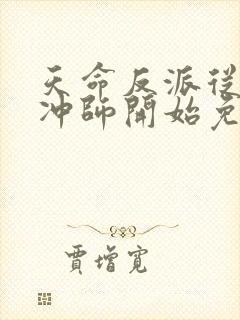 天命反派從
沖師開始免
賈增寬